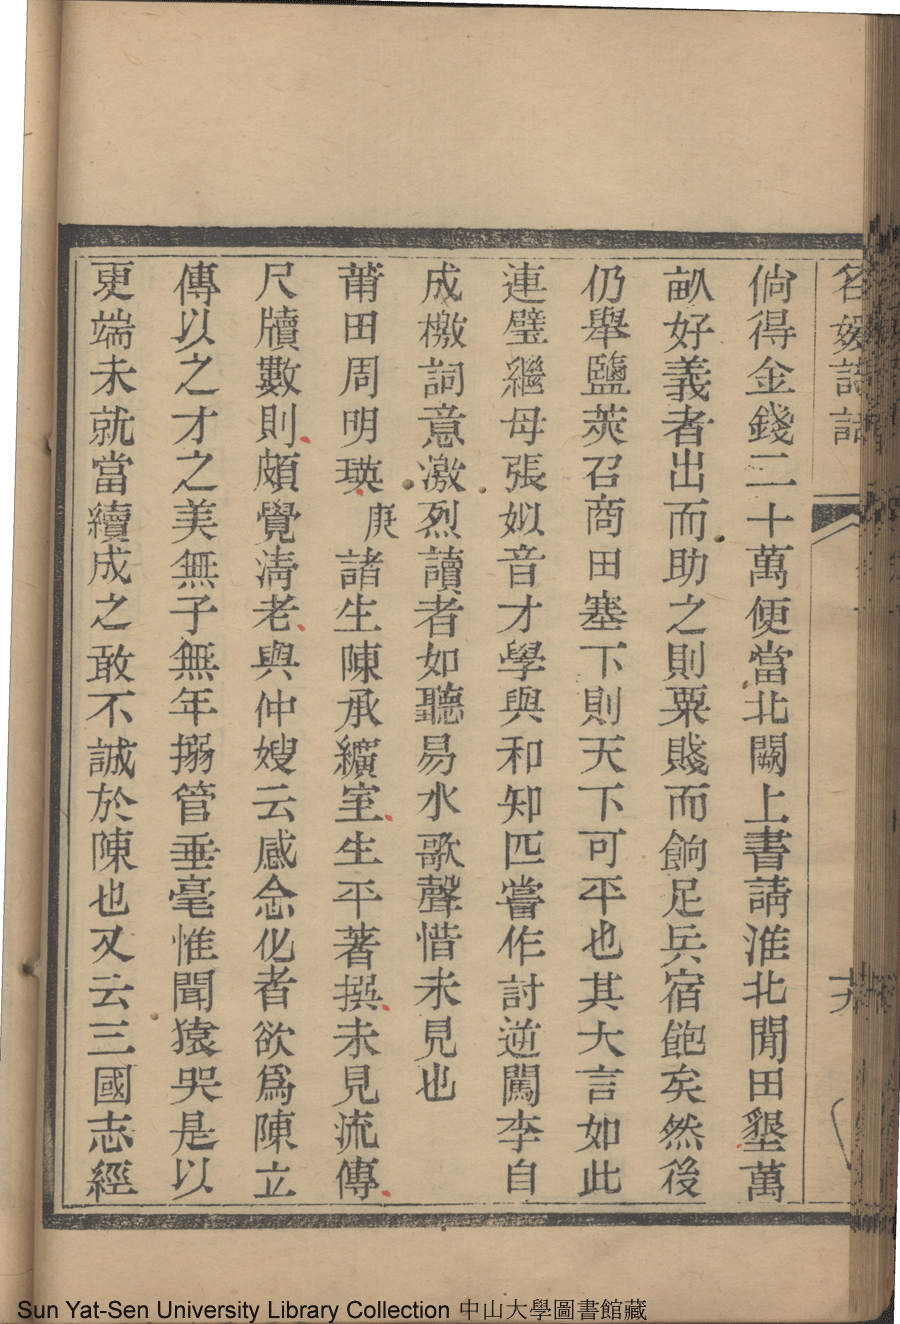 名媛詩話
倘得金錢二十萬便當北闕上書請淮北閒田墾萬
畝好義者出而助之則粟賤而餉足兵宿飽矣然後
仍舉鹽莢召商田塞下則天下可平也其大言如此
連璧繼母張姒音才學與和知匹嘗作討逆闖李自
成檄詞意激烈讀者如聽易水歌聲惜未見也
莆田周明瑛庚諸生陳承纊室生平著撰未見流傳
尺牘數則頗覺清老與仲嫂云感念化者欲爲陳立
傳以之才之美無子無年搦管垂毫惟聞猿哭是以
更端未就當續成之敢不誠於陳也又云三國志經
Sun Yat-Sen University Library Collection 中山大學圖書館藏